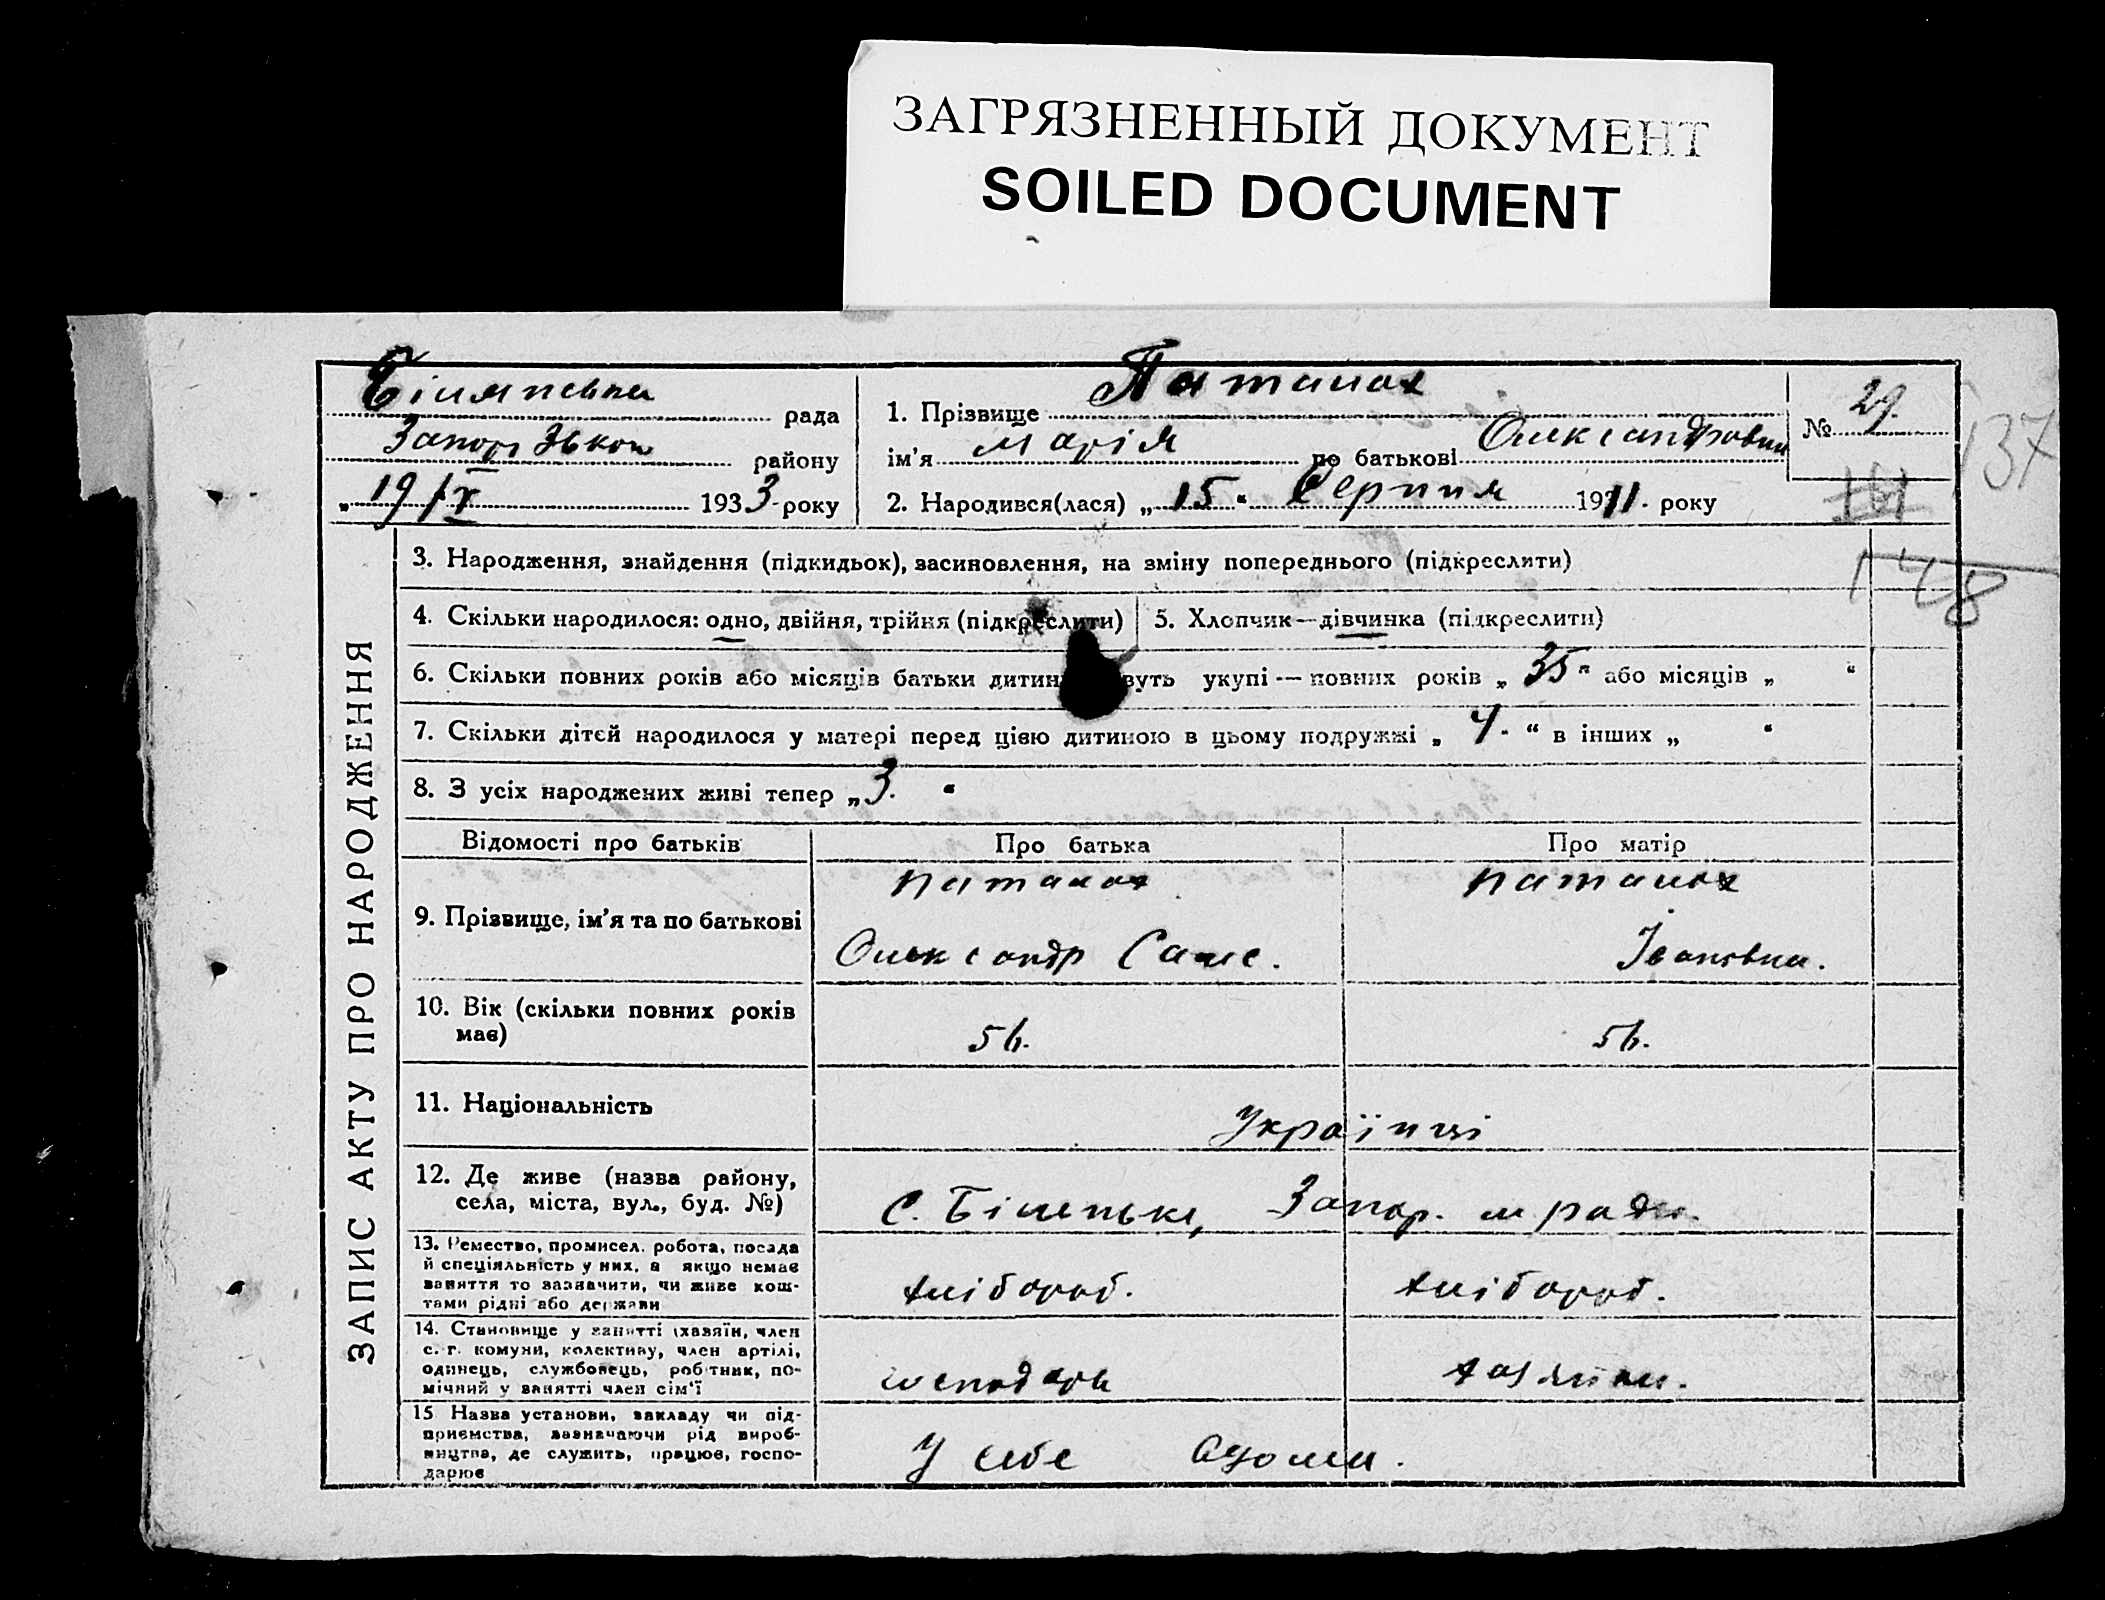 ЗАГРЯЗНЕННЫЙ ДОКУМЕНТ
SOILED DOCUMENT
рада
району
„19/X 1933 року
1. Прізвище
ім'я Марія по батькові Олександровна
2. Народився(лася) „15“ Серпня 1911. року
№ 29.
137
161
148
ЗАПИС АКТУ ПРО НАРОДЖЕННЯ
3. Народження, знайдення (підкидьок), засиновлення, на зміну попереднього (підкреслити)
4. Скільки народилося: одно, двійня, трійня (підкреслити)
5. Хлопчик—дівчинка (підкреслити)
6. Скільки повних років або місяців батьки дитин вуть укупі — повних років „35“ або місяців „ “
7. Скільки дітей народилося у матері перед цією дитиною в цьому подружжі „4.“ в інших „ “
8. З усіх народжених живі тепер „3. “
Відомості про батьків
Про батька
Про матір
9. Прізвище, ім'я та по батькові
Олександр
Івановна.
10. Вік (скільки повних років
має)
56.
56.
11. Національність
Українці
12. Де живе (назва району,
села, міста, вул., буд. №)
С. Біленьке, Запор. м ради.
13. Ремество, промисел. робота, посада
й спеціяльність у них, а якщо немає
заняття то зазначити, чи живе кош-
тами рідні або держави
хлібороб.
хлібороб.
14. Становище у занятті (хазяїн, член
с.-г. комуни, колективу, член артілі,
одинець, службовець, робітник, по-
мічний у занятті член сім'ї
господарь
хазяйка.
15 Назва установи, закладу чи під-
приємства, зазначаючи рід вироб-
ництва, де служить, працює, госпо-
дарює
У себе вдома.